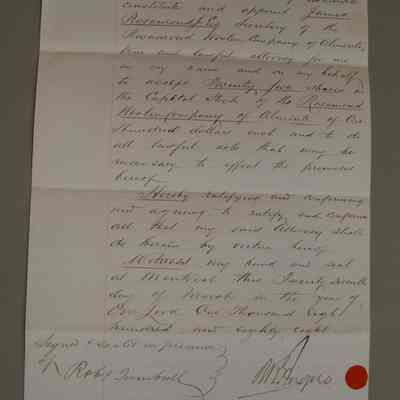 constitute and appoint James
Rosamond Esq Secretary of the
Rosamond Woolen Company of Almonte,
true and lawful attorney for me
in my name and on my behalf
to accept Twenty five shares in
the Capital Stock of the Rosamond
Woolen Company of Almonte of One
Hundred dollars each and to do
all lawful acts that may be
necessary to effect the premises
hereof
Hereby ratifying and confirming
and agreeing to ratify and confirm
all that my said Attorney shall
do herein by virtue hereof
Witness my hand and seal
at Montreal this Twenty seventh
day of March in the year of
Our Lord One Thousand eigh
hundred and eighty eight
Signed & Sealed in presence
of
Robt Turnbull